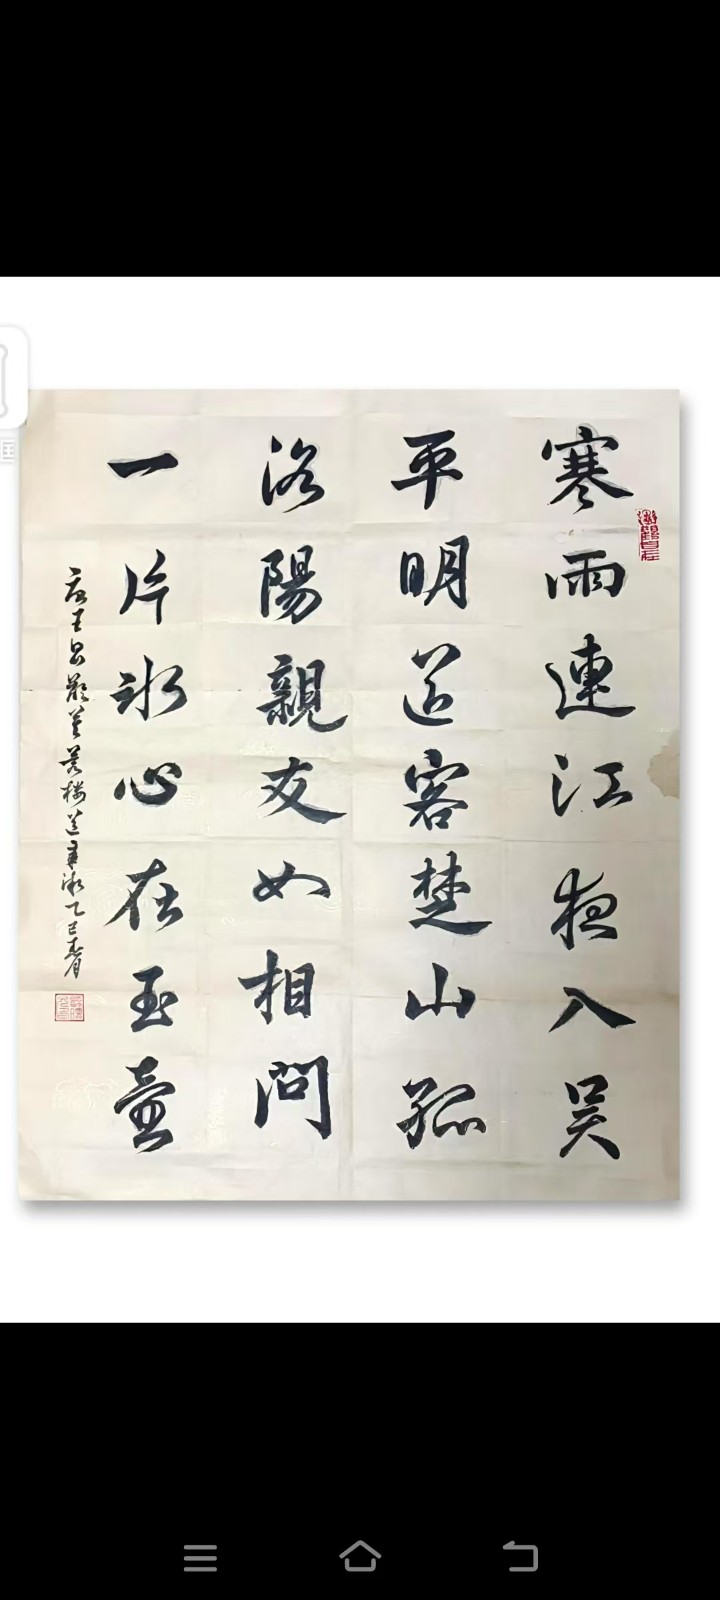 寒雨連江夜入吴
平明送客楚山孤
洛陽親友如相問
一片冰心在玉壶
录王昌龄芙蓉楼送辛渐乙巳春